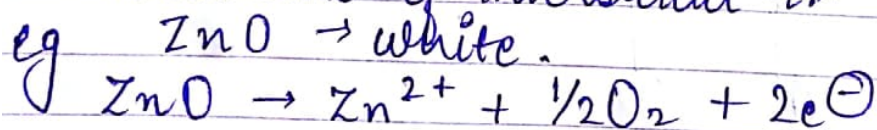 eg ZnO → white.
ZnO → Zn²⁺ + 1/2O₂ + 2e⊖